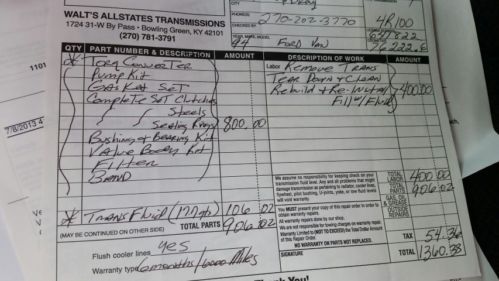 WALT'S ALLSTATES TRANSMISSIONS
1724 31-W By Pass • Bowling Green, KY 42101
(270) 781-3791
PHONE(S)
270-202-3770
4R100
94 Ford Van
QTY PART NUMBER & DESCRIPTION AMOUNT
DESCRIPTION OF WORK AMOUNT
Torq Converter
Pump Kit
Gasket Set
Complete Set Clutches
Steels
Sealing Rings 800.00
Bushing & Bearing Kit
Valve Body Kit
Filter
Band
Labor Remove Trans
Tear Down & Clean
Rebuild & Re-Install 400.00
Fill w/Fluid
Trans Fluid (17 qts) 106.02
(MAY BE CONTINUED ON OTHER SIDE) TOTAL PARTS 906.02
Flush cooler lines yes
Warranty type 6 months/6000 Miles
We assume no responsibility for keeping check on your
transmission fluid level. Any and all problems that might
damage transmission as pertaining to radiator, cooler lines,
flywheel, pilot bushing, U-joints, yoke, or low fluid levels
will void warranty.
You MUST present your copy of this repair order in order to
obtain warranty repairs.
All warranty repairs done by our shop.
We are not responsible for towing charges on warranty repair.
Warranty Limited to (NOT TO EXCEED) the Total Dollar Amount
of this Repair Order.
NO WARRANTY ON PARTS NOT REPLACED.
SIGNATURE
TOTAL LABOR 400.00
TOTAL PARTS 906.02
TAX 54.36
TOTAL 1360.38
7/8/2013
1101